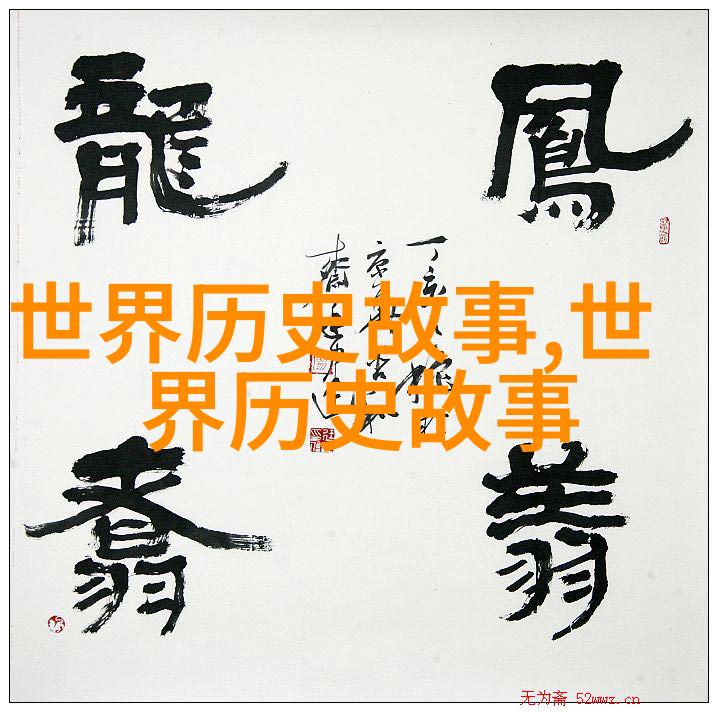 鳳
翔
龍
翥
丁亥
世界历史故事,世
界历史故事
无为斋 52wwz.cn